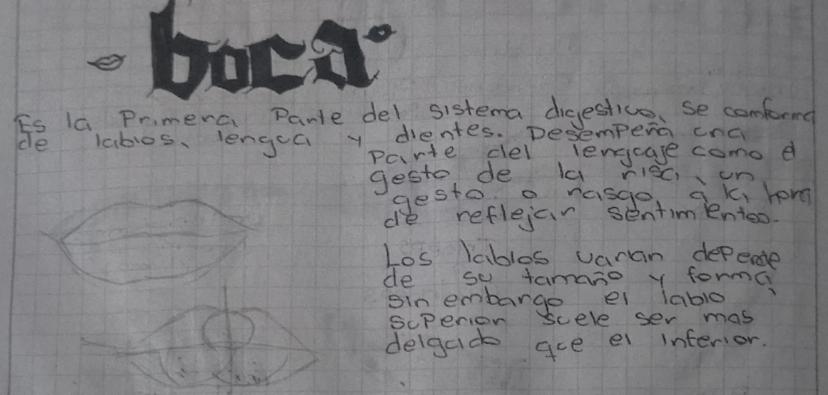 boca
Es la Primera Parte del sistema digestivo, se comforma
de labios, lengua y dientes. Desempeña una
parte del lenguaje como el
gesto de la un
gesto o rasgo a la hora
de reflejar sentimientos.
Los labios varian depende
de su tamaño y forma,
sin embargo el labio
superior suele ser mas
delgado que el inferior.